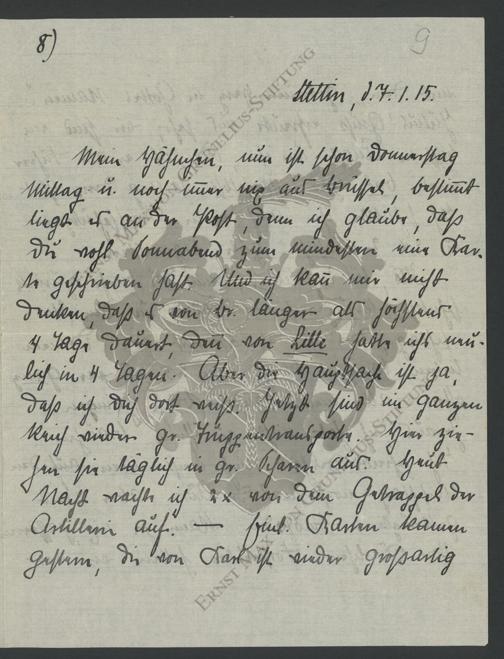 8)
9
Stettin, d. 7. 1. 15.
Mein Hähnchen, nun ist schon Donnerstag
Mittag u. noch immer nix aus Brüssel, bestimmt
liegt es an der Post, denn ich glaube, daß
Du wohl Sonnabend zum mindesten eine Kar-
te geschrieben hast. Und ich kann mir nicht
denken, daß es von Br. länger als höchstens
4 Tage dauert, den von Lille hatte ich neu-
lich in 4 Tagen. Aber die Hauptsache ist ja,
daß ich Dich dort weiß. Jetzt sind im ganzen
Reich wieder gr. Truppentransporte. Hier zie-
hen sie täglich in gr. Scharen aus. Heut
Nacht wachte ich 2x von dem Getrappel der
Artillerie auf. — Karten kamen
gestern, die von Karl ist wieder großartig
ERNST MAX VON GRUNELIUS-STIFTUNG
ERNST MAX VON GRUNELIUS-STIFTUNG